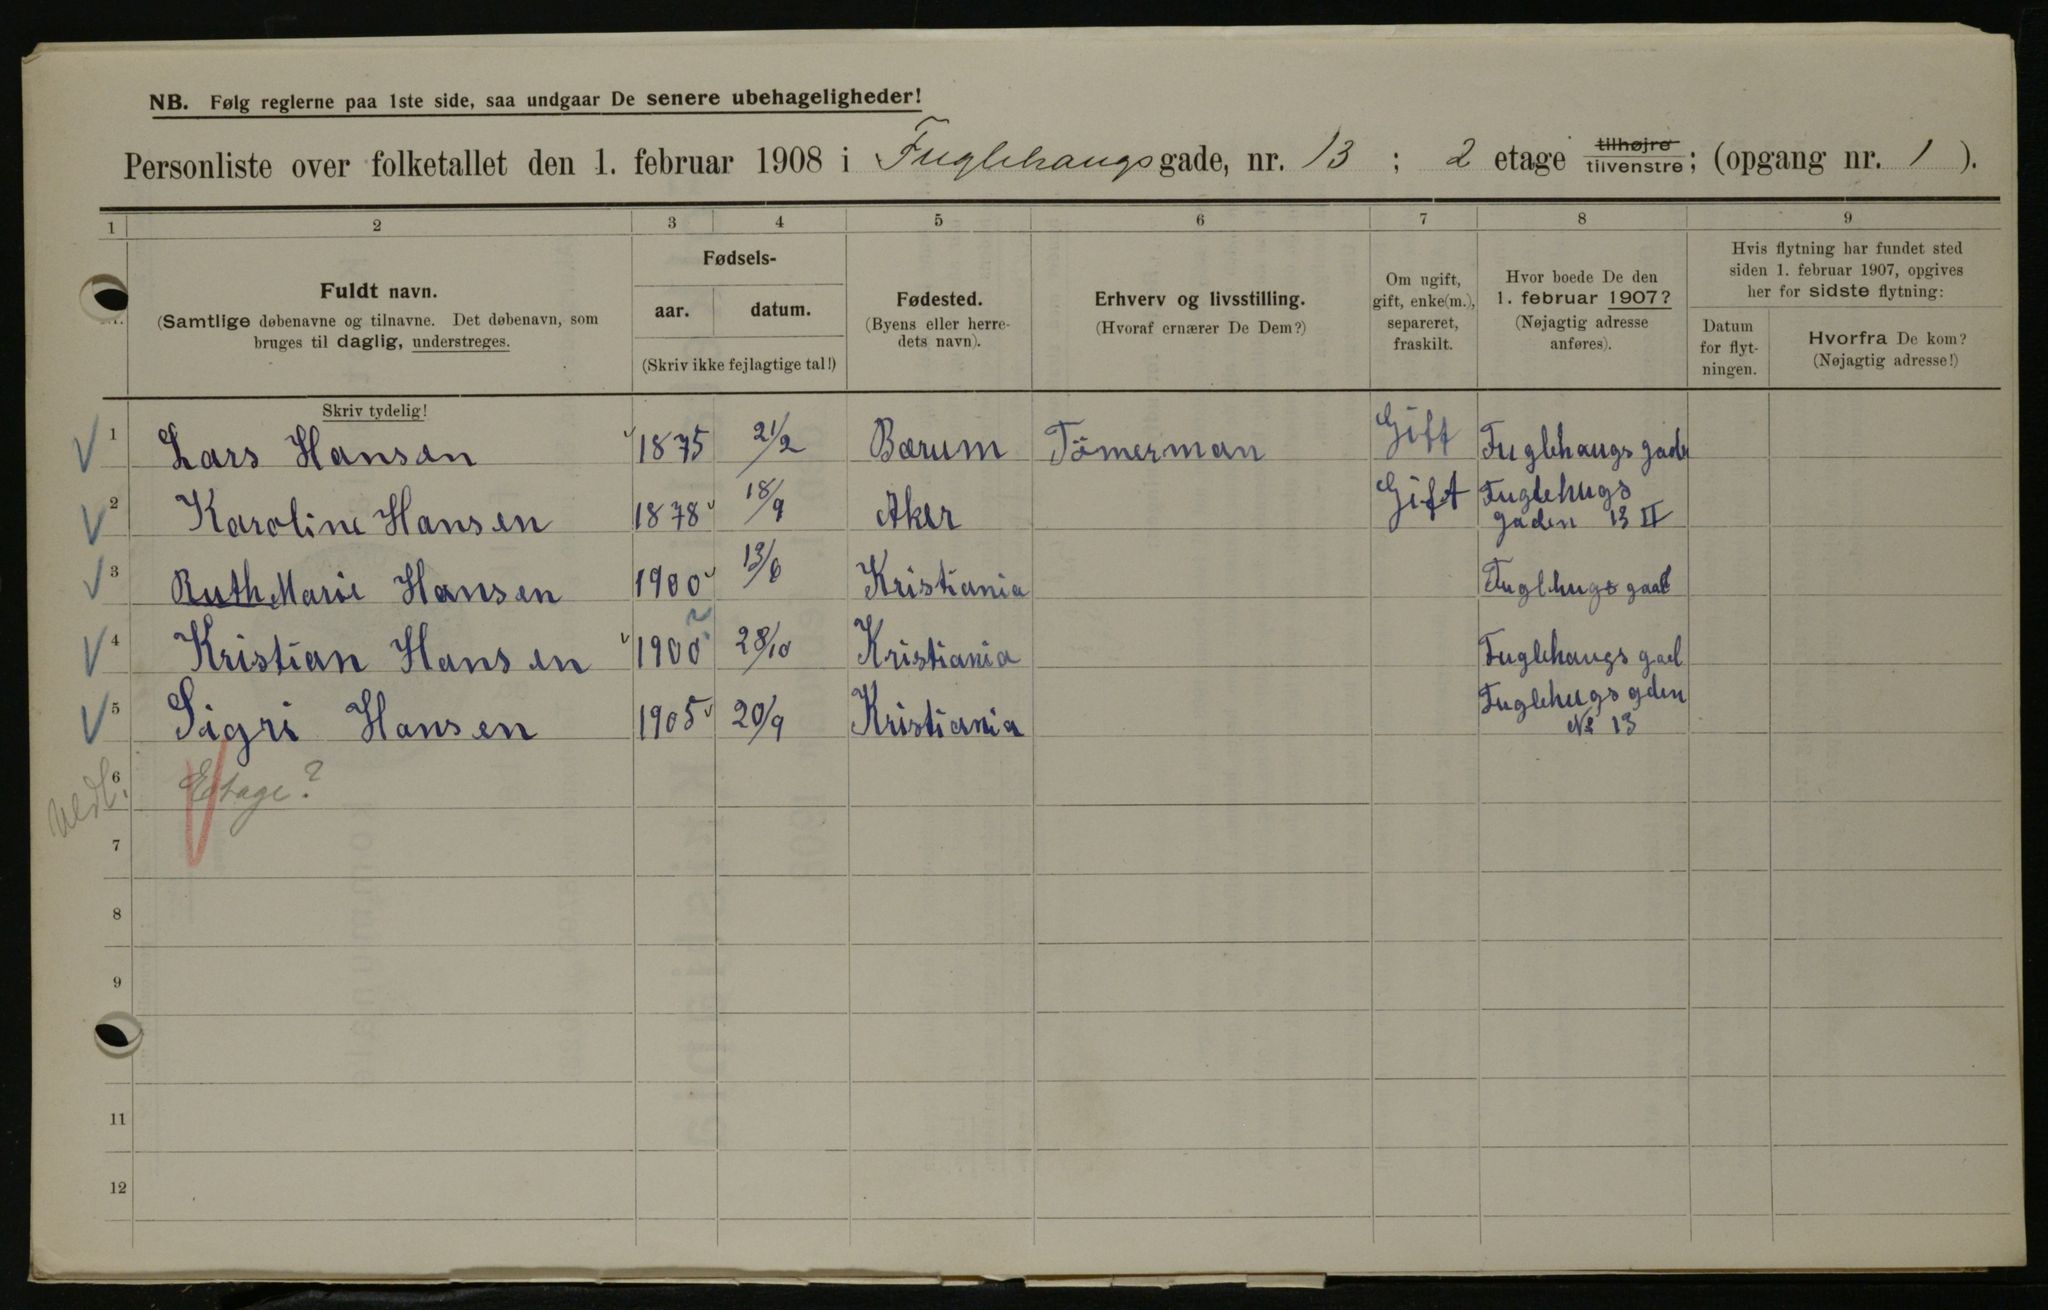 NB. Følg reglerne paa 1ste side, saa undgaar De senere ubehageligheder!
Personliste over folketallet den 1. februar 1908 i Fuglehaugsgade, nr. 13 ; 2 etage tilhøjre tilvenstre; (opgang nr. 1 ).
1 2 3 4 5 6 7 8 9
Fuldt navn.
(Samtlige døbenavne og tilnavne. Det døbenavn, som
bruges til daglig, understreges.
Fødsels-
aar. datum.
(Skriv ikke fejlagtige tal!)
Fødested.
(Byens eller herre-
dets navn).
Erhverv og livsstilling.
(Hvoraf ernærer De Dem?)
Om ugift,
gift, enke(m.),
separeret,
fraskilt.
Hvor boede De den
1. februar 1907?
(Nøjagtig adresse
anføres).
Hvis flytning har fundet sted
siden 1. februar 1907, opgives
her for sidste flytning:
Datum
for flyt-
ningen.
Hvorfra De kom?
(Nøjagtig adresse!)
Skriv tydelig!
1 Lars Hansen 1875 21/2 Bærum Tömerman Gift Fuglehaugs gade
2 Karoline Hansen 1878 18/9 Aker Gift Fuglehugs
gaden 13 II
3 Ruth Marie Hansen 1900 13/6 Kristiania Fuglehugs gade
4 Kristian Hansen 1900 ? 28/10 Kristiania Fuglehaugs gad
5 Sigri Hansen 1905 20/9 Kristiania Fuglehugs gden
No 13
6 Etage?
7
8
9
11
12